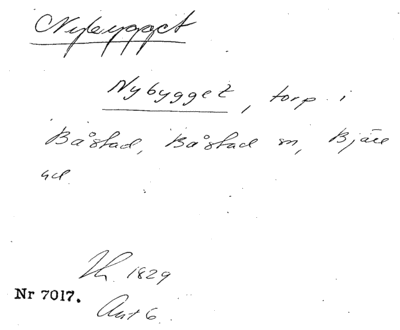 Nybygget
Nybygget, torp i
Båstad, Båstad sn, Bjäre
hd
Lh. 1829
Nr 7017.
Akt 6